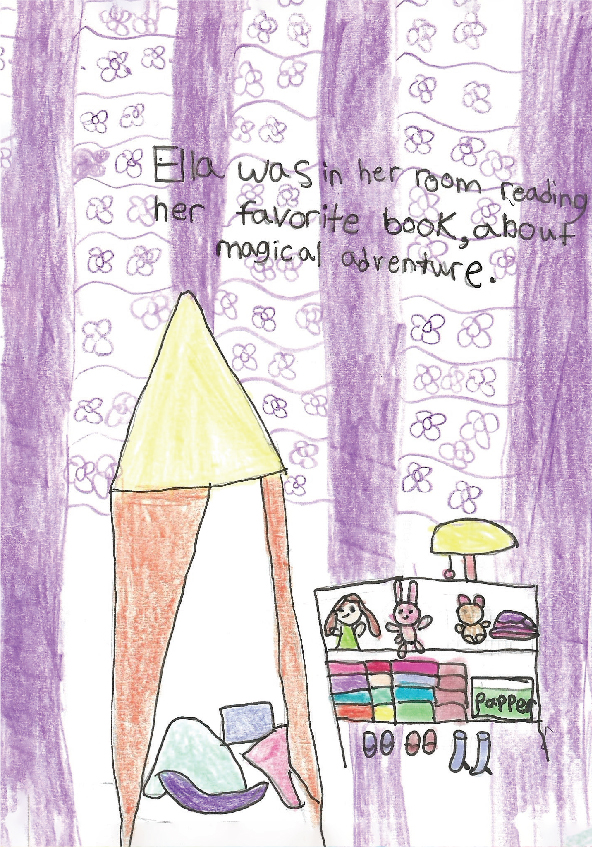 Ella was in her room reading
her favorite book, about
magical adventure.
papper